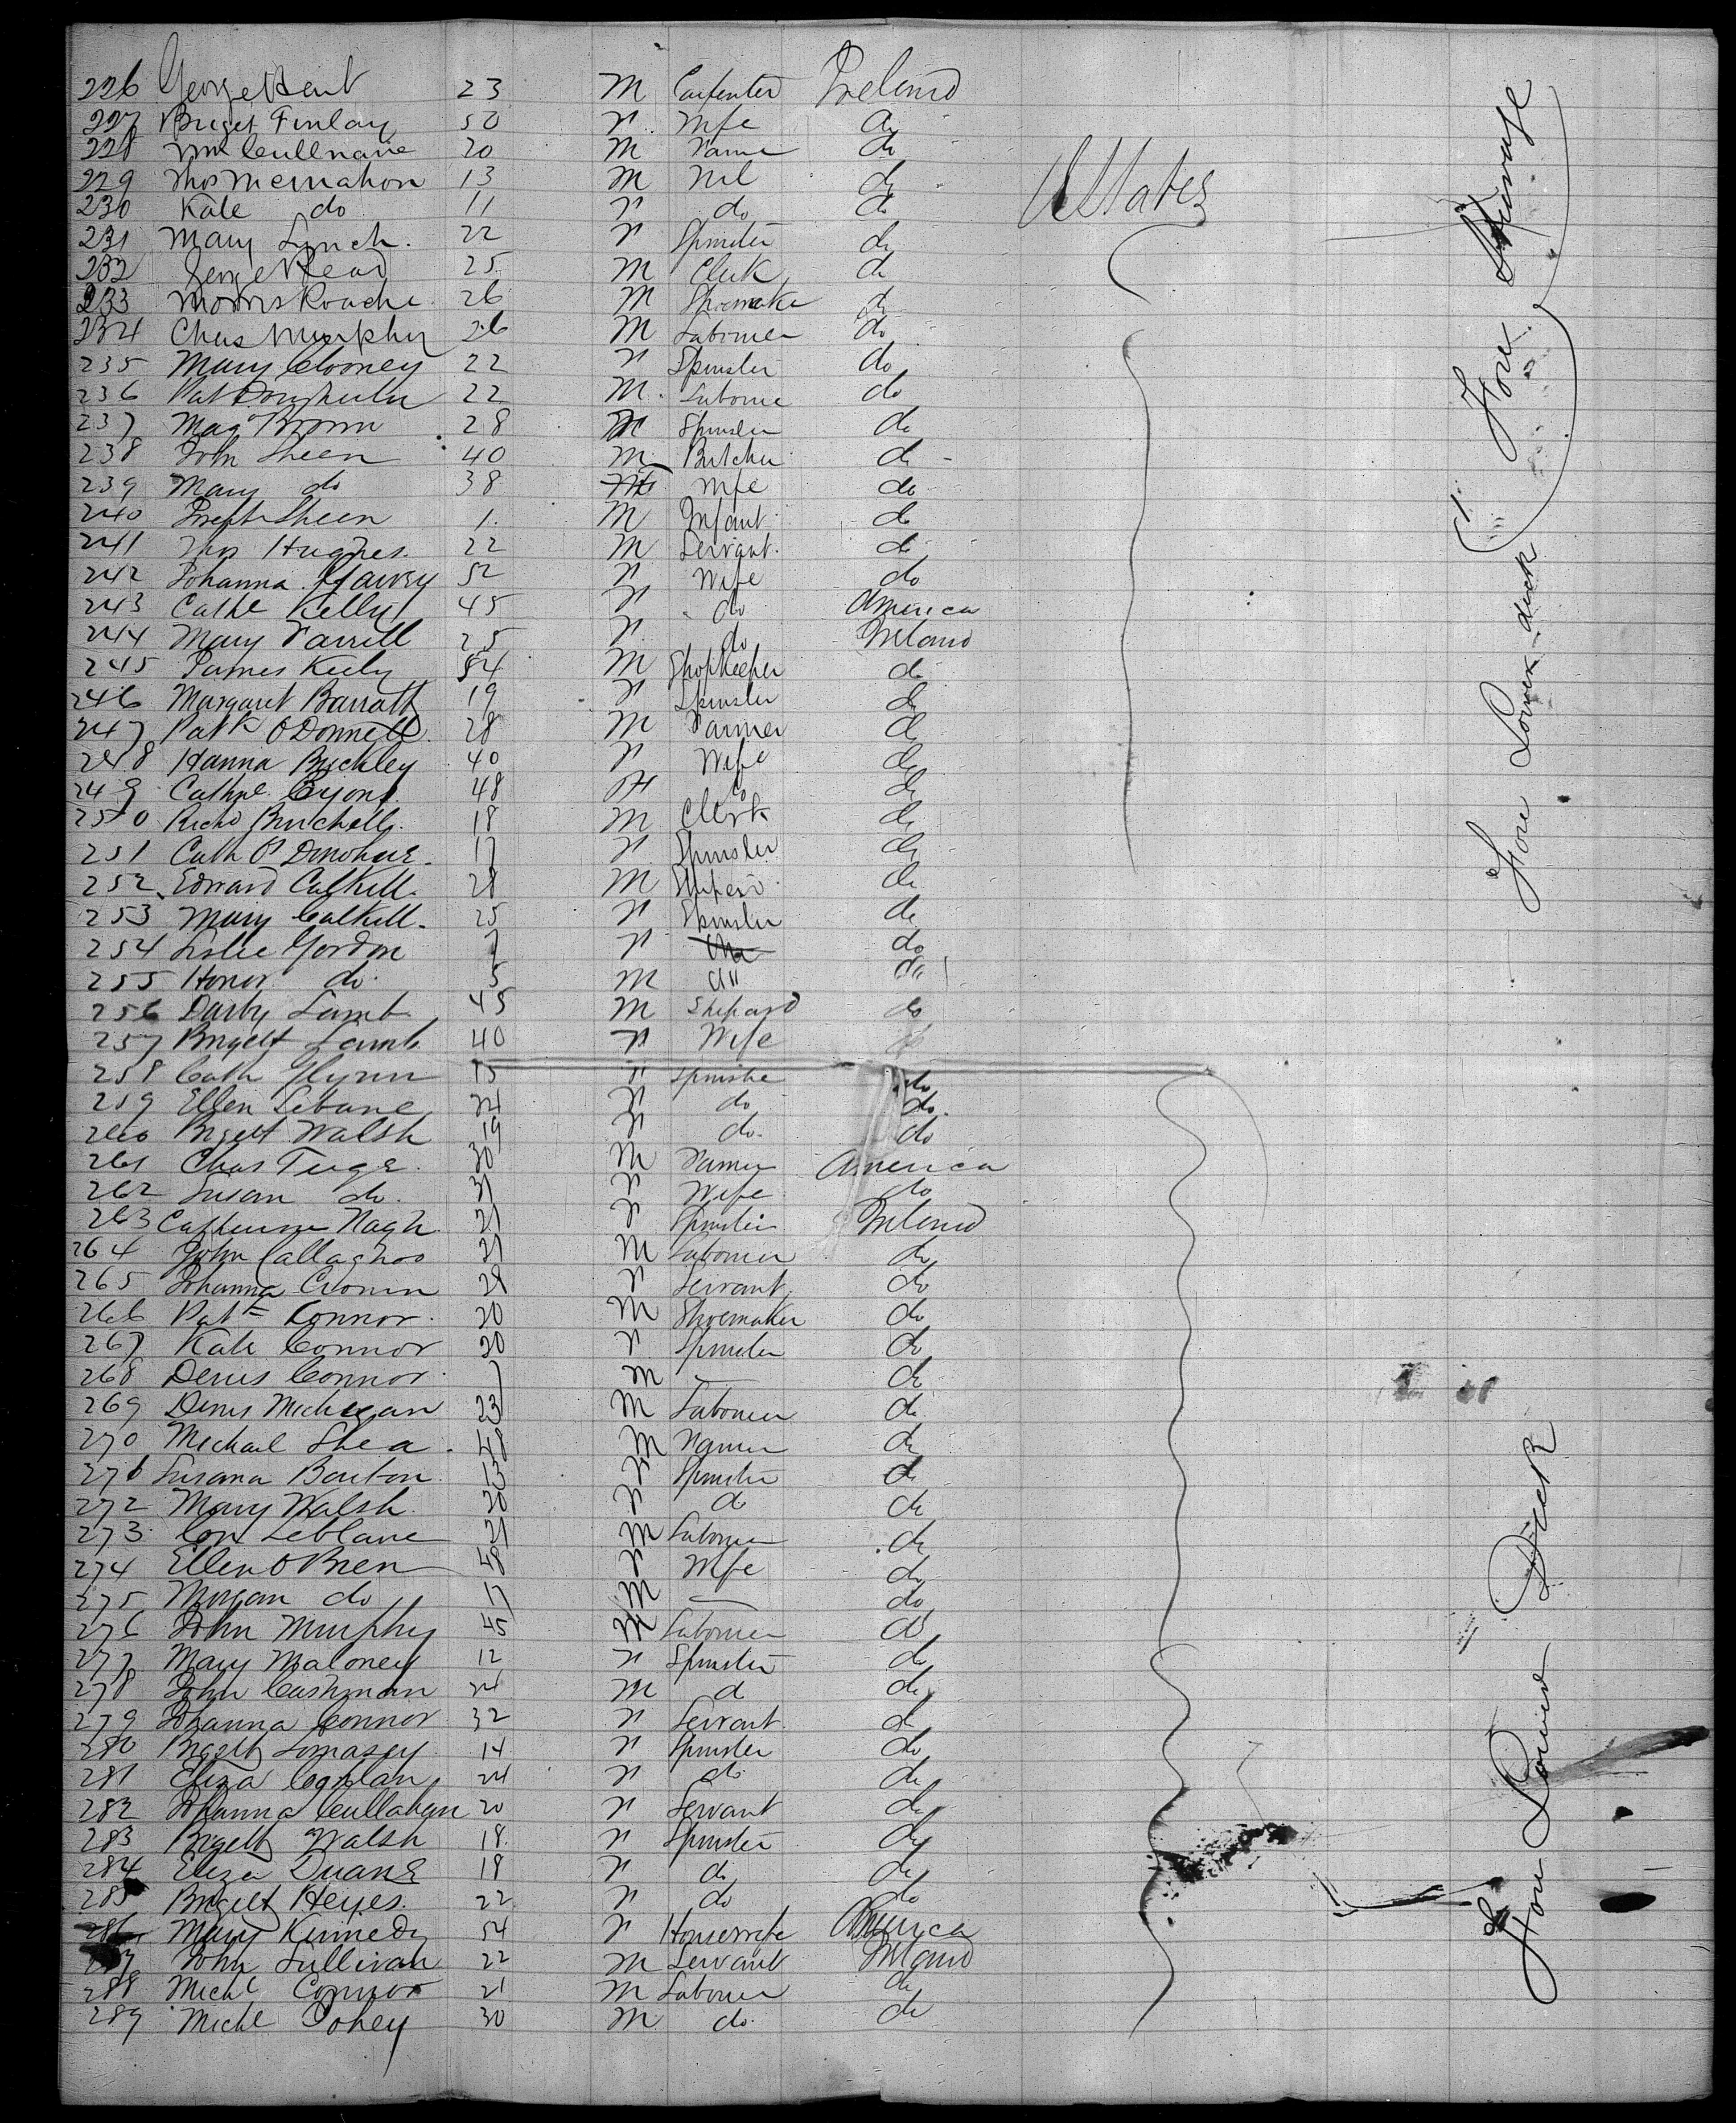 226 George Hent 23 M Carpenter Ireland
227 Briget Finlay 50 F Wife do
228 Wm Cullinane 20 M Farmer do
229 Thos McMahon 13 M Nil do
230 Kate do 11 F do do
231 Mary Lynch. 22 F Spinster do
232 George Read 25 M Clerk do
233 Morris Roache 26 M Shoemaker do
234 Chas Murphy 26 M Labourer do
235 Mary Clooney 22 F Spinster do
236 Pat Dougherty 22 M. Labourer do
237 Mag Brown 28 Spinster do
238 John Sheen 40 M Butcher do
239 Mary do 38 Wife do
240 Joseph Sheen 1. M Infant do
241 Thos Hughes. 22 M Servant. do
242 Johanna Harvey 52 F Wife do
243 Cathe Kelly 45 F do America
244 Mary Farrell 25 F do Ireland
245 James Keely 54 M Shopkeeper do
246 Margaret Barratt 19 F Spinster do
247 Patk O Donnell 28 M Farmer do
248 Hanna Buckley 40 F Wife do
249 Cathne 48 do do
250 Richd Burchell. 18 M Clerk do
251 Cath O Donohue. 17 F Spinster do
252 Edward Calkill. 28 M do
253 Mary Calkill. 25 F Spinster do
254 Leslie Gordon 7 F do
255 Honor do. 5 M do do
256 Darby Lamb 45 M Shepard do
257 Brigett Lamb 40 F Wife do
258 Cath Flynn 15 F Spinster do
259 Ellen Lebane 24 F do do.
260 Brigett Walsh 19 F do. do
261 Chas Tuge. 30 M Farmer America
262 Susan do. 31 F Wife do
263 Catherine Nagh 21 F Spinster Ireland
264 John Callaghan 21 M Labourer do
265 Johanna Cronin 28 F Servant do
266 Patk Connor. 20 M Shoemaker do
267 Kate Connor 20 F Spinster do
268 Denis Connor 7 M — do
269 Denis Michegan 23 M Labourer do
270 Michael Shea. 48 M Farmer do
271 Susana Bouton. 23 F Spinster do
272 Mary Walsh. 20 F do do
273 Con Leblane 21 M Labourer do
274 Ellen O Brien 48 F Wife do
275 Morgan do 17 M — do
276 John Murphy 45 M Labourer do
277 Mary Maloney 12 F Spinster do
278 John Cashman 24 M do do
279 Johanna Connor 32 F Servant do
280 Brigett Lomasey 14 F Spinster do
281 Eliza Coghlan 24 F do do
282 Johanna Cullahan 20 F Servant do
283 Brigett Walsh 18. F Spinster do
284 Eliza Duane 18 F do do
285 Brigett Heyes. 22 F do do
286 Mary Kennedy 54 F Housewife America
287 John Sullivan 22 M Servant Ireland
288 Michl Connor 21 M Labourer do
289 Michl Cohey 30 M do. do
U States
Fore Steerage
Fore Lower deck
Fore Lower Deck